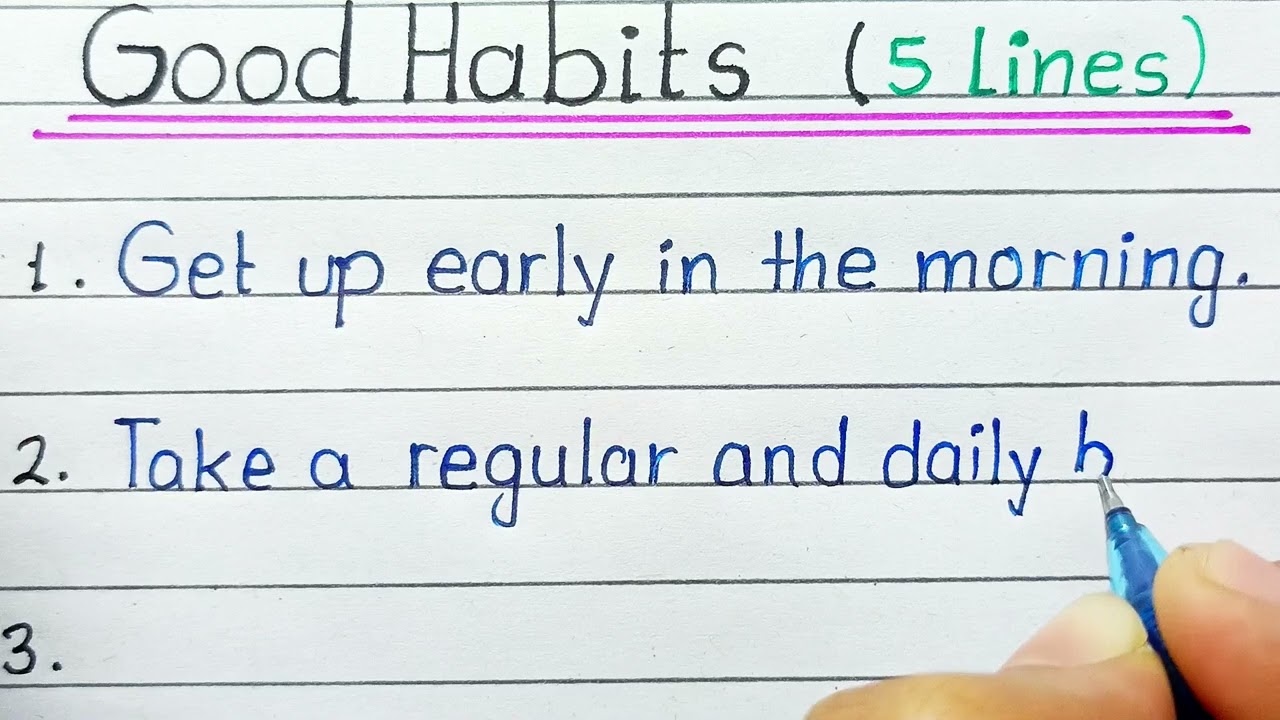 Good Habits (5 Lines)
1. Get up early in the morning.
2. Take a regular and daily
3.